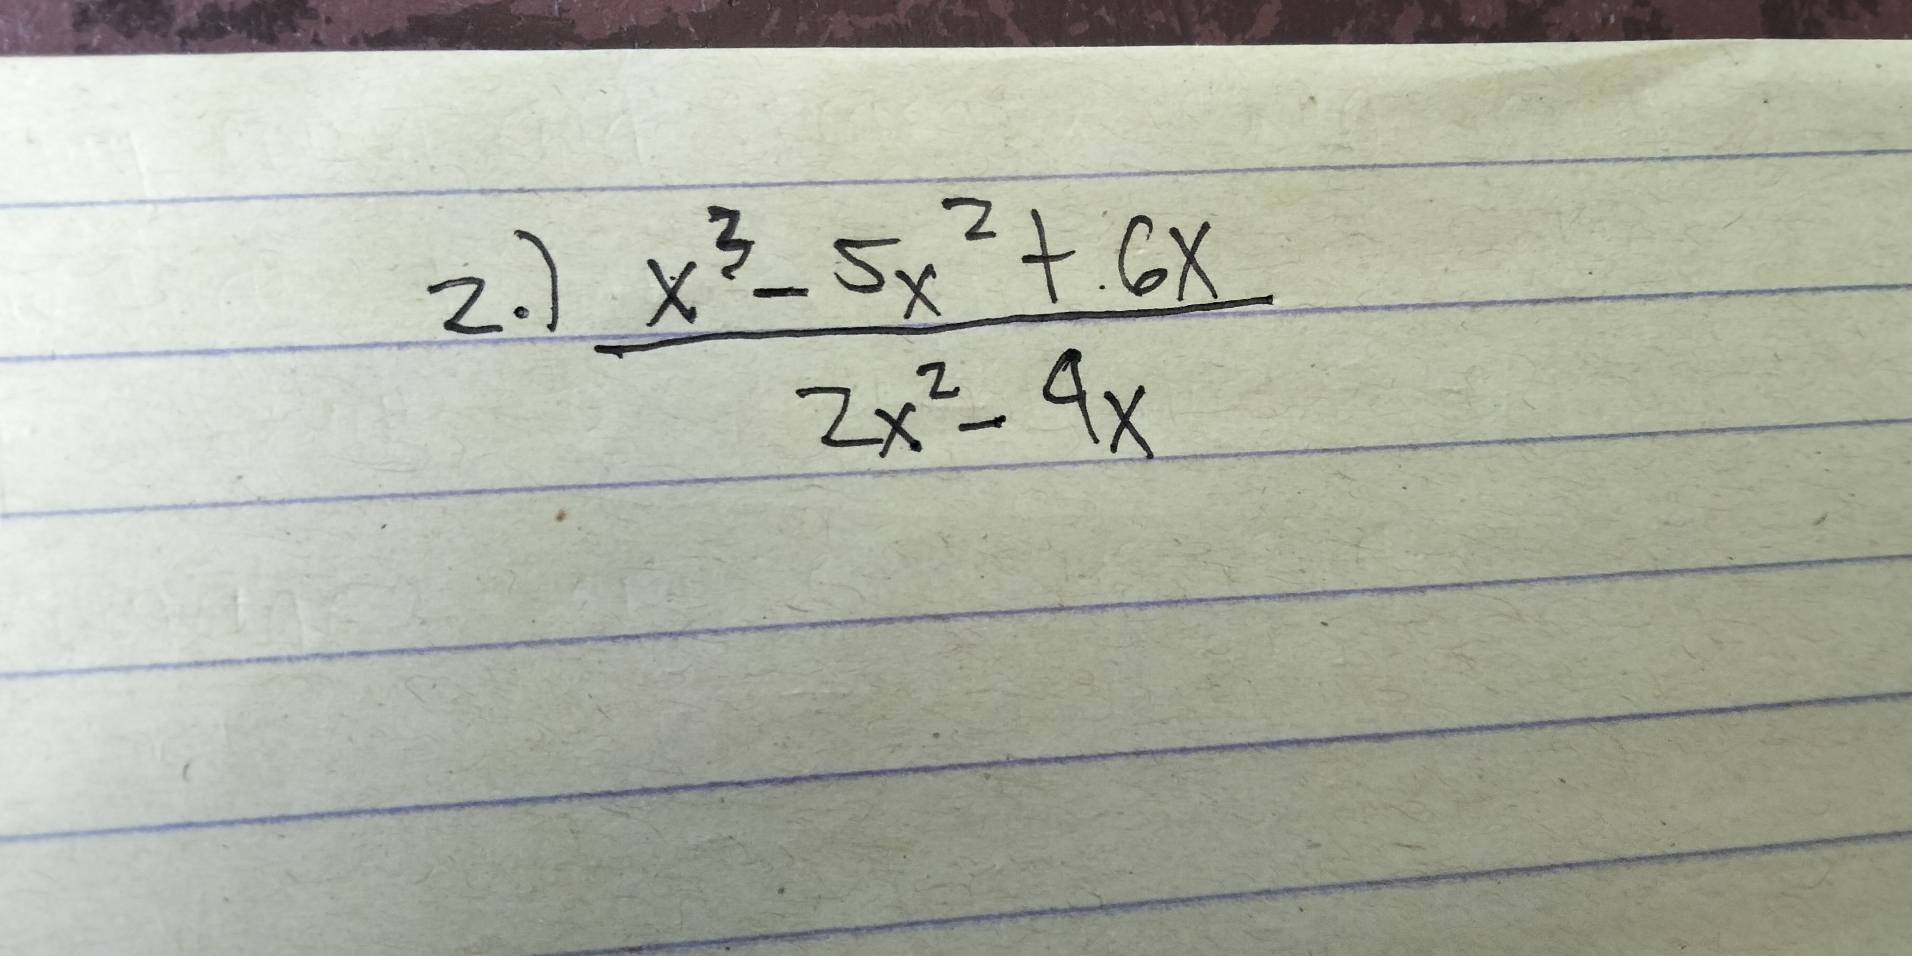 2.) x³ - 5x² + 6x
2x² - 4x